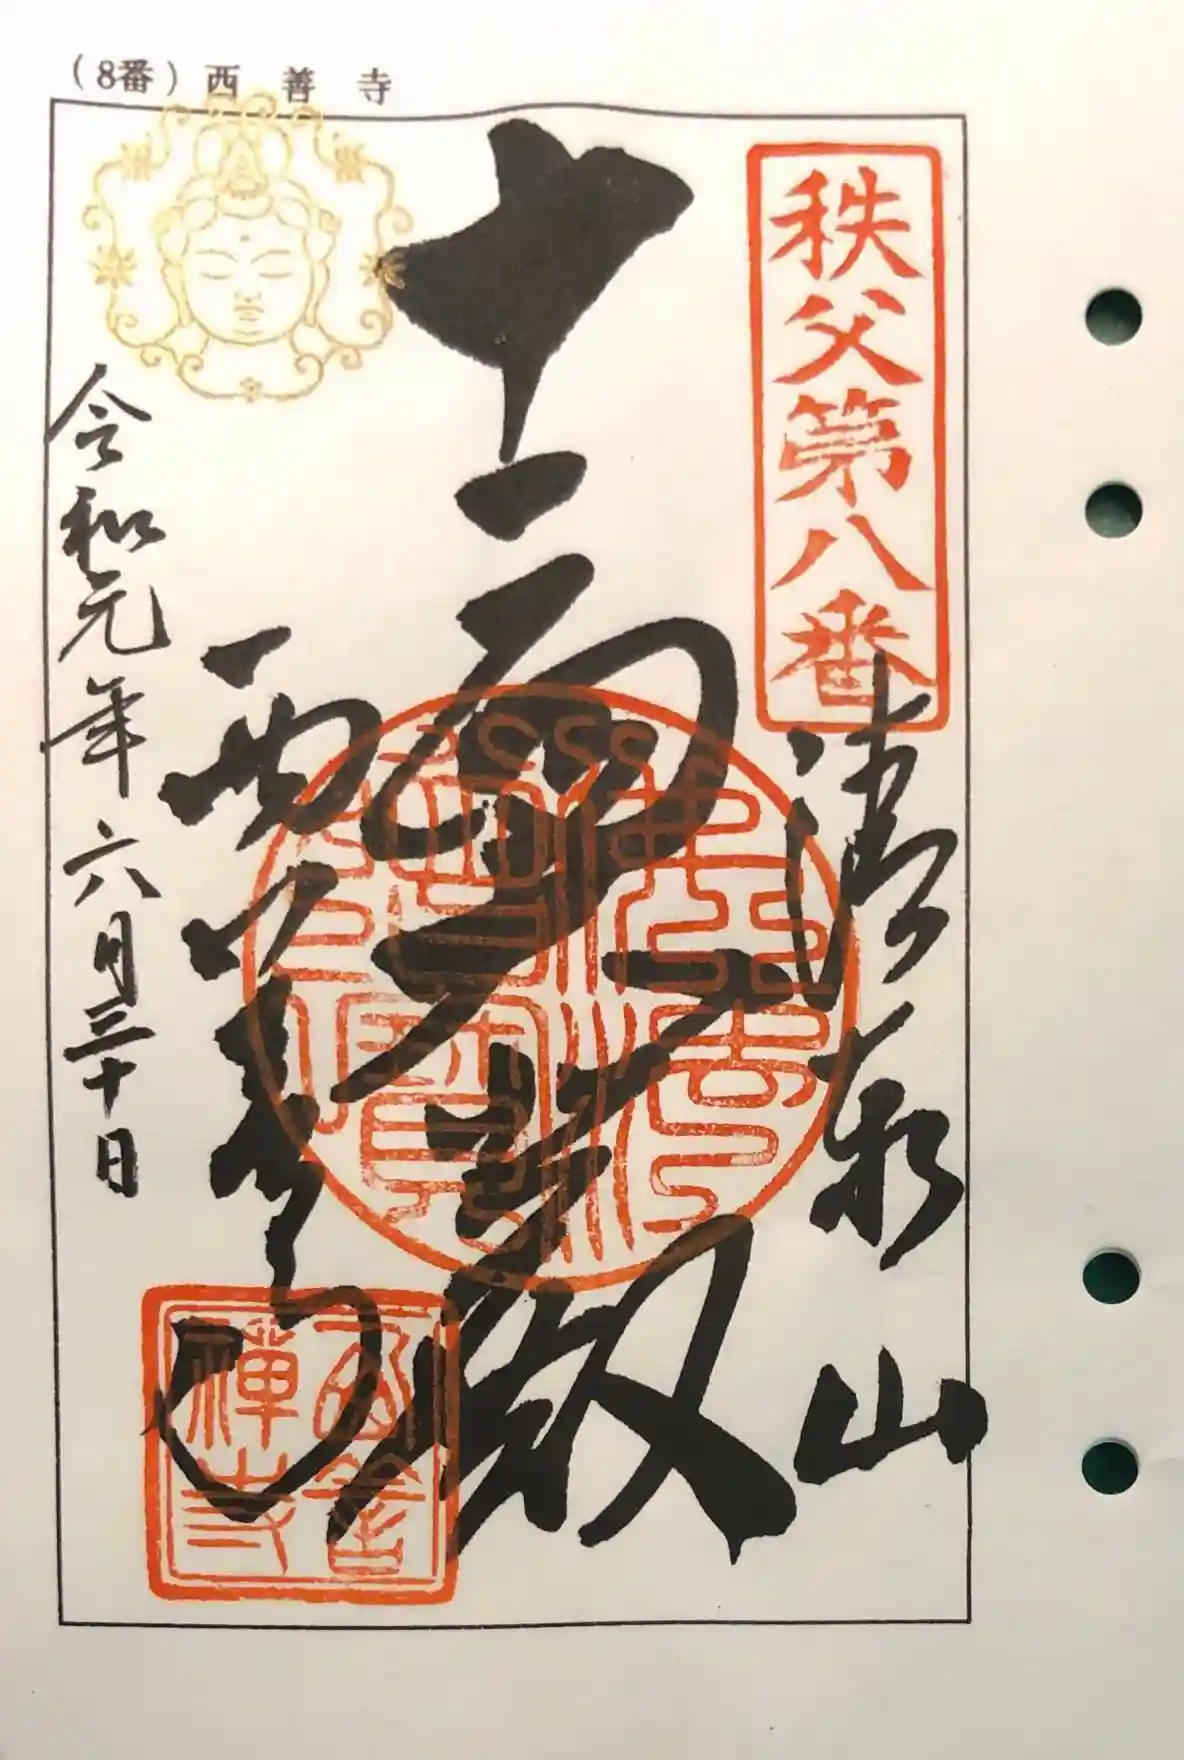 （8番）西善寺
秩父第八番
清泰山
十一面尊
殿
西善寺
令和元年六月三十日
佛法僧寶
西善禅寺